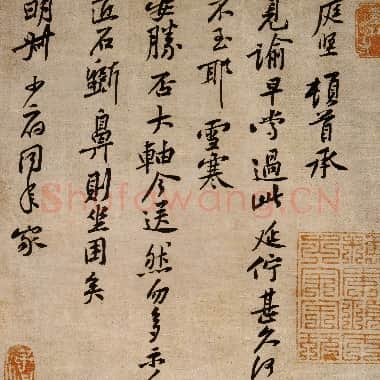 庭坚顿首承
見諭早常過此延佇甚久何
不至耶雪寒
安勝否大軸今送然勿多示人
近石斲鼻則坐困矣
明叔少府同年家
Shufawang.CN